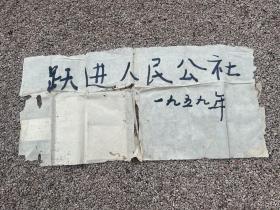 跃进人民公社
一九五九年